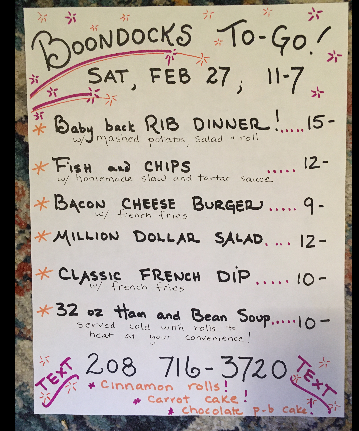 BOONDOCKS TO-GO!
SAT, FEB 27, 11-7
* Baby back RIB DINNER!.....15-
w/ mashed potato, salad & roll
* FISH and CHIPS ..... 12-
w/ homemade slaw and tartar sauce
* BACON CHEESE BURGER..... 9-
w/ french fries
* MILLION DOLLAR SALAD..... 12-
* CLASSIC FRENCH DIP ..... 10-
w/ french fries
* 32 oz Ham and Bean Soup.....10-
served cold with rolls to
heat at your convenience!
TEXT 208 716-3720 TEXT
* Cinnamon rolls!
* carrot cake!
* chocolate p-b cake!